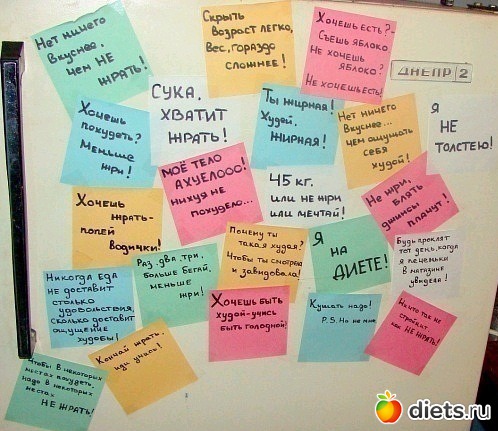 Нет ничего
вкуснее,
чем НЕ
ЖРАТЬ!
Скрыть
возраст легко,
Вес, гораздо
сложнее!
Хочешь есть? -
Съешь яблоко
Не хочешь
яблоко?
Не хочешь есть!
ДНЕПР 2
Хочешь
похудеть?
Меньше
жри!
СУКА,
ХВАТИТ
ЖРАТЬ!
Ты жирная!
Худей,
ЖИРНАЯ!
Нет ничего
Вкуснее...
чем ощущать
себя
худой!
Я
НЕ
ТОЛСТЕЮ!
Хочешь
жрать-
попей
водички!
МОЁ ТЕЛО
АХУЕЛООО!
нихуя не
похудело...
45 кг.
или не жри
или мечтай!
Не жри,
блять
джинсы
плачут!
Никогда Еда
не доставит
столько
удовольствия,
сколько доставит
ощущение
худобы!
Раз, два, три,
больше бегай,
меньше
жри!
Почему ты
такая худая?
Чтобы ты смотрела
и завидовала!
Я
НА
ДИЕТЕ!
Будь проклят
тот день, когда
я печеньки
в магазине
увидела!
Чтобы в некоторых
местах похудеть,
надо в некоторых
местах
НЕ ЖРАТЬ!
Кончай жрать,
иди учись!
Хочешь быть
худой-учись
быть голодной!
Кушать надо!
P.S. Но не мне
Ничто так не
стройнит,
как НЕ ЖРАТЬ!
diets.ru